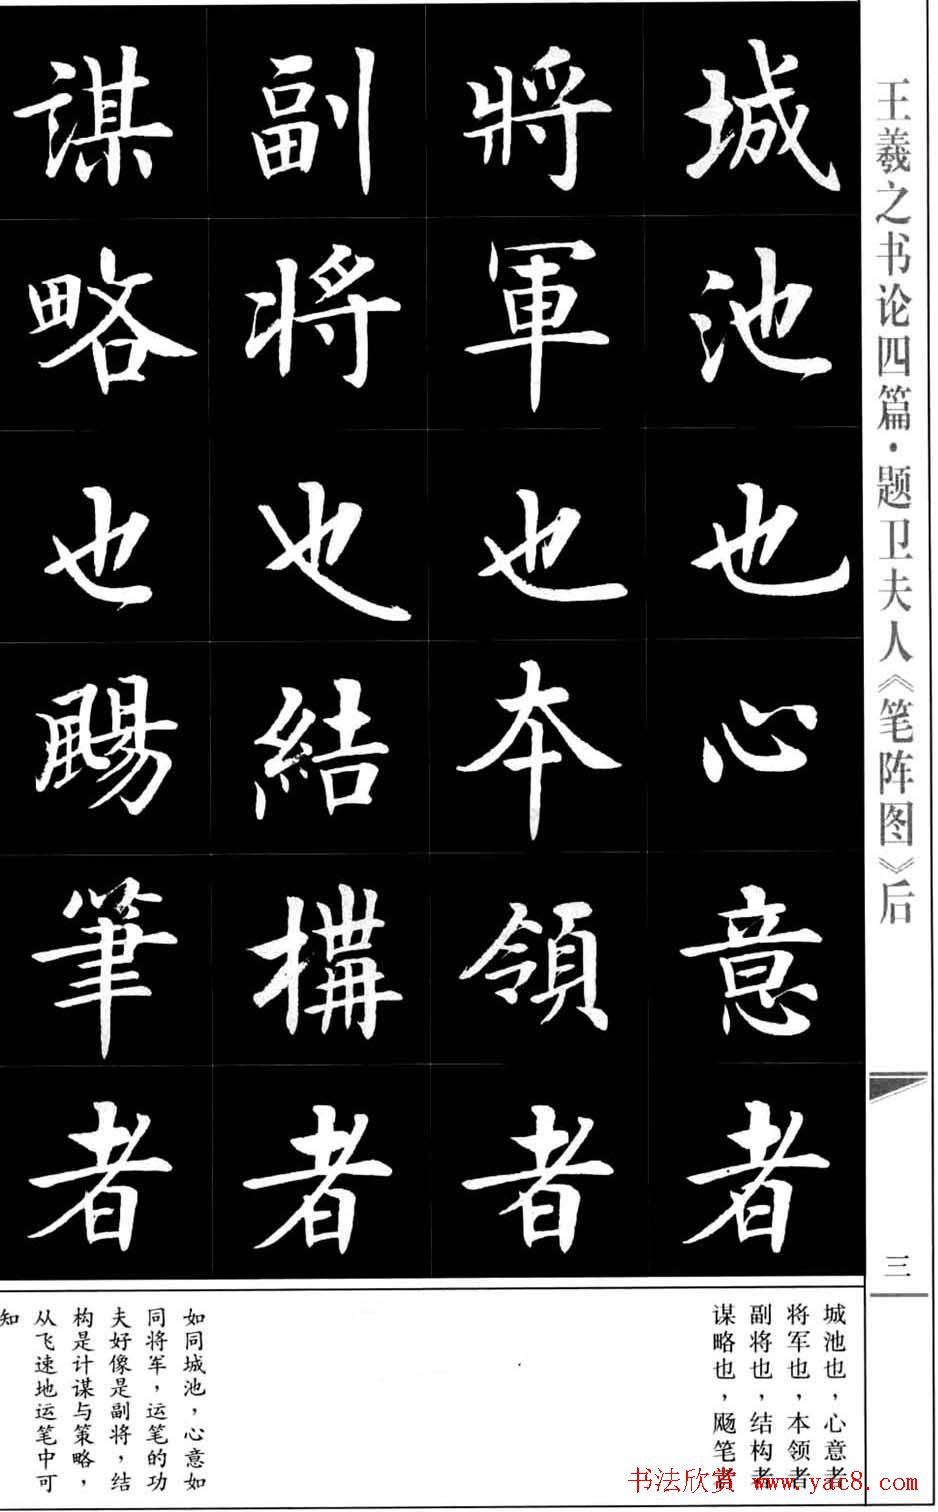 王羲之书论四篇·题卫夫人《笔阵图》后
三
城池也心意者
將軍也本領者
副将也結構者
謀略也颺筆者
城池也，心意者
将军也，本领者
副将也，结构者
谋略也，飏笔者
如同城池，心意如
同将军，运笔的功
夫好像是副将，结
构是计谋与策略，
从飞速地运笔中可
知
书法欣赏 www.yac8.com